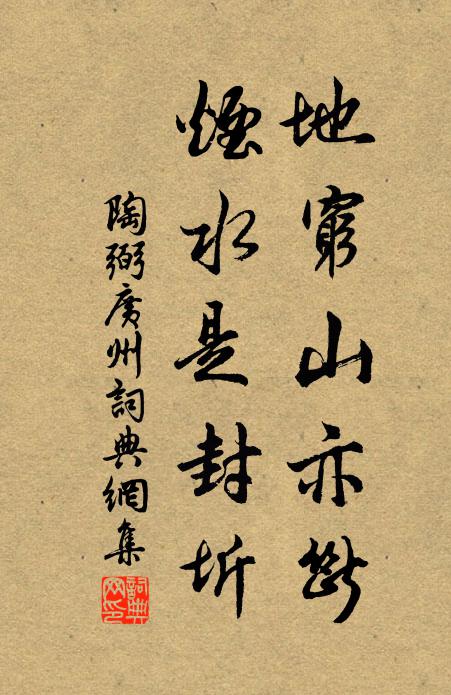 地窮山亦斷
煙水是封圻
陶弼廣州詞典網集
詞典网印